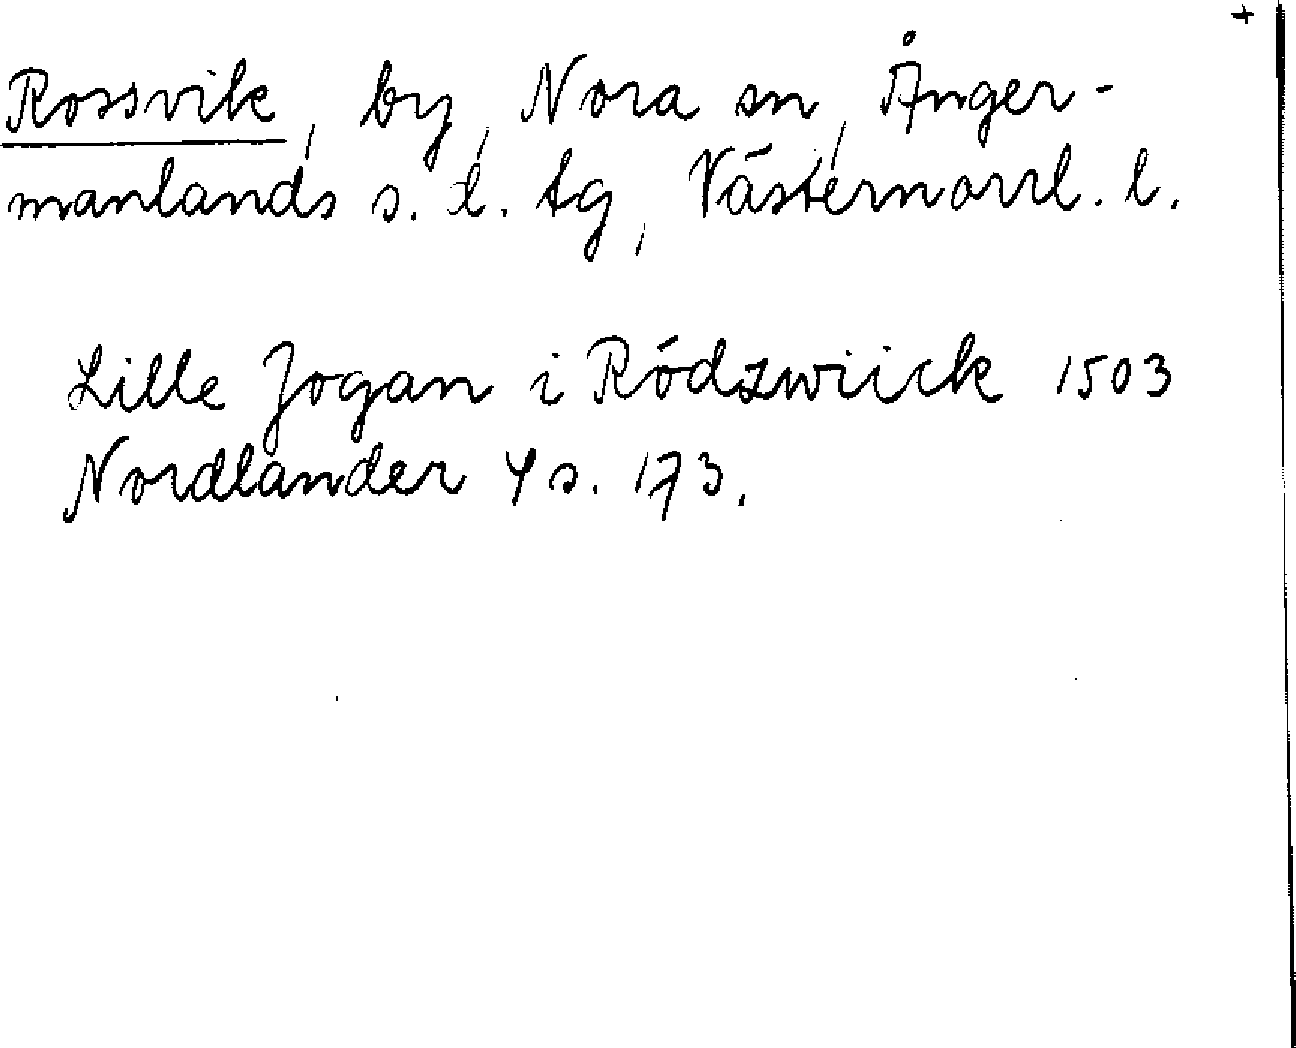 +
Rossvik, by, Nora sn, Ånger-
manlands s. d. tg, Västernorrl. l.
Lille Jogan i Rödzwiick 1503
Nordlander 4 s. 173.